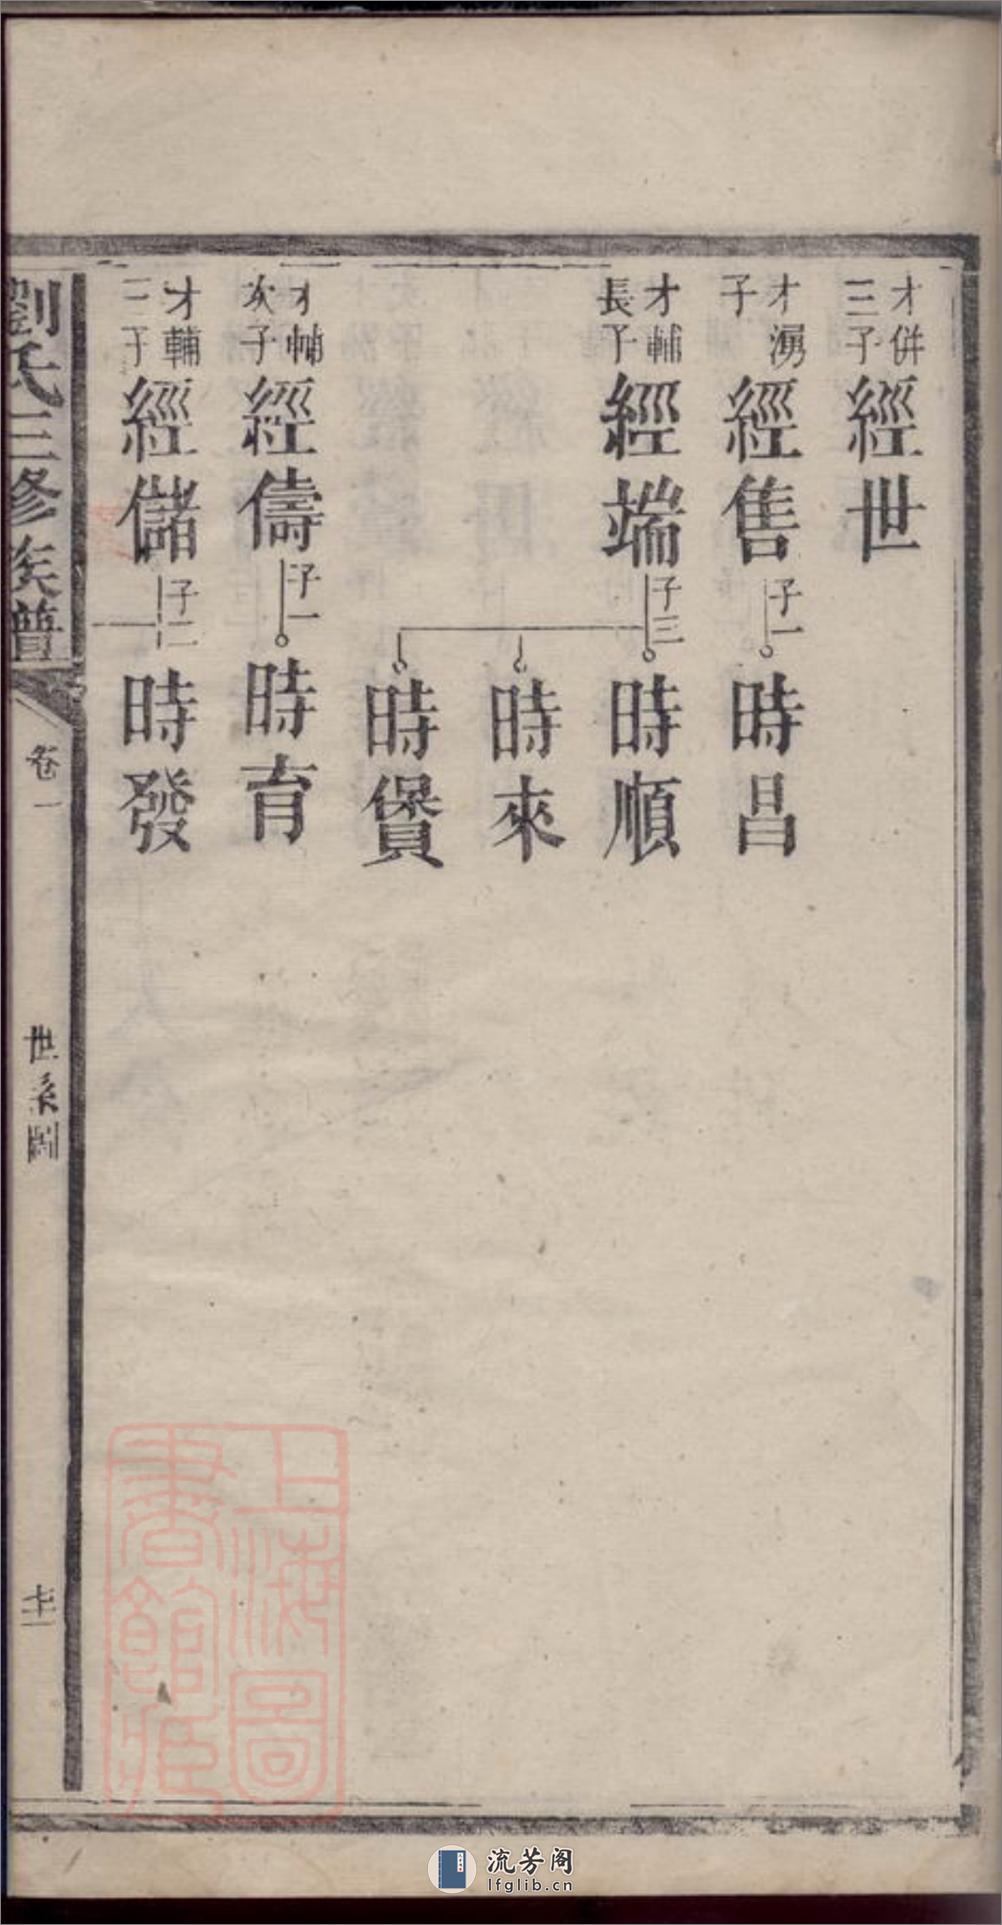 才併
三子
經世
才湧
子
經售
子一
時昌
才輔
長子
經端
子三
時順
時來
時貲
才輔
次子
經儔
子一
時育
才輔
三子
經儲
子二
時發
劉氏三修族譜
卷一
世系圖
十一
上海圖
書館藏
流芳阁
lfglib.cn